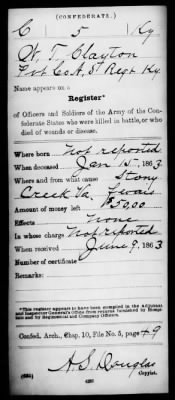 (CONFEDERATE.)
C 5 Ky
W. T. Clayton
Pvt Co A, 5" Regt Ky.
Name appears on a
Register*
of Officers and Soldiers of the Army of the Con-
federate States who were killed in battle, or who
died of wounds or disease.
Where born Not reported
When deceased Jan 15, 1863
Where and from what cause Stony
Creek Va.
Amount of money left $5.00
Effects None
In whose charge Not reported
When received June 9, 1863
Number of certificate
Remarks:
*This register appears to have been compiled in the Adjutant
and Inspector General's Office from returns furnished by Hospitals
and by Regimental and Company Officers.
Confed. Arch., Chap. 10, File No. 5, page 49
A. S. Douglas
Copyist.